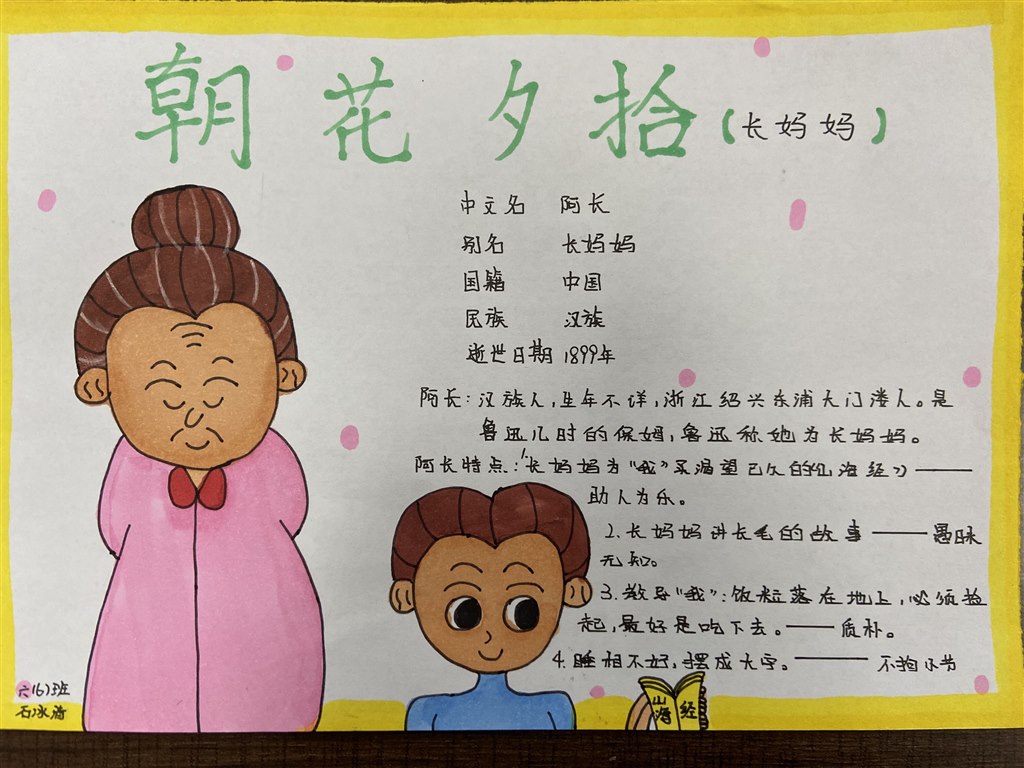 朝花夕拾(长妈妈)
中文名 阿长
别名 长妈妈
国籍 中国
民族 汉族
逝世日期 1899年
阿长:汉族人,生年不详,浙江绍兴东浦大门溇人。是
鲁迅儿时的保姆,鲁迅称她为长妈妈。
阿长特点:1.长妈妈为“我”买渴望已久的《山海经》——
助人为乐。
2.长妈妈讲长毛的故事——愚昧
无知。
3.教导“我”:饭粒落在地上,必须捡
起,最好是吃下去。——质朴。
4.睡相不好,摆成大字。——不拘小节
山海 经
六(6)班
石冰